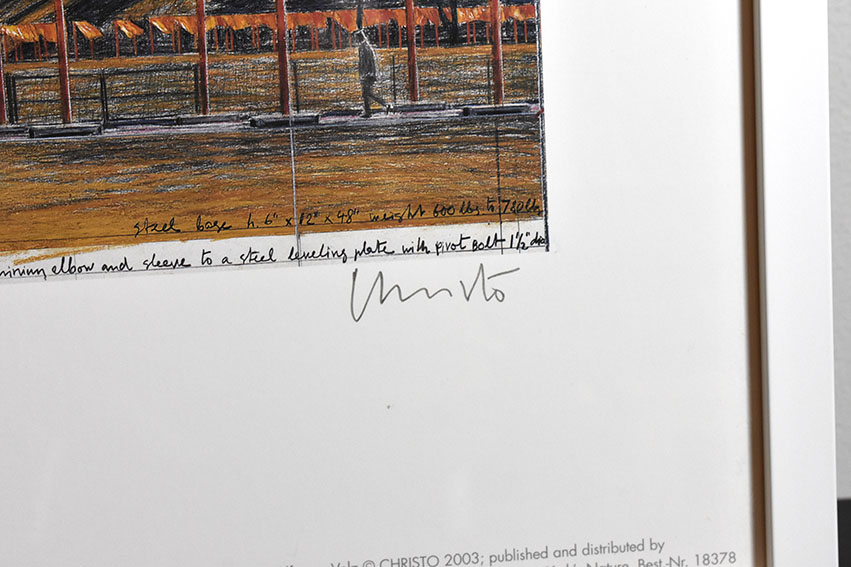 steel base h. 6" x 12" x 48" weight 600 lbs to 780 lbs
elbow and sleeve to a steel leveling plate with pivot bolt 1½" dia
Christo
© CHRISTO 2003; published and distributed by
Nature, Best.-Nr. 18378